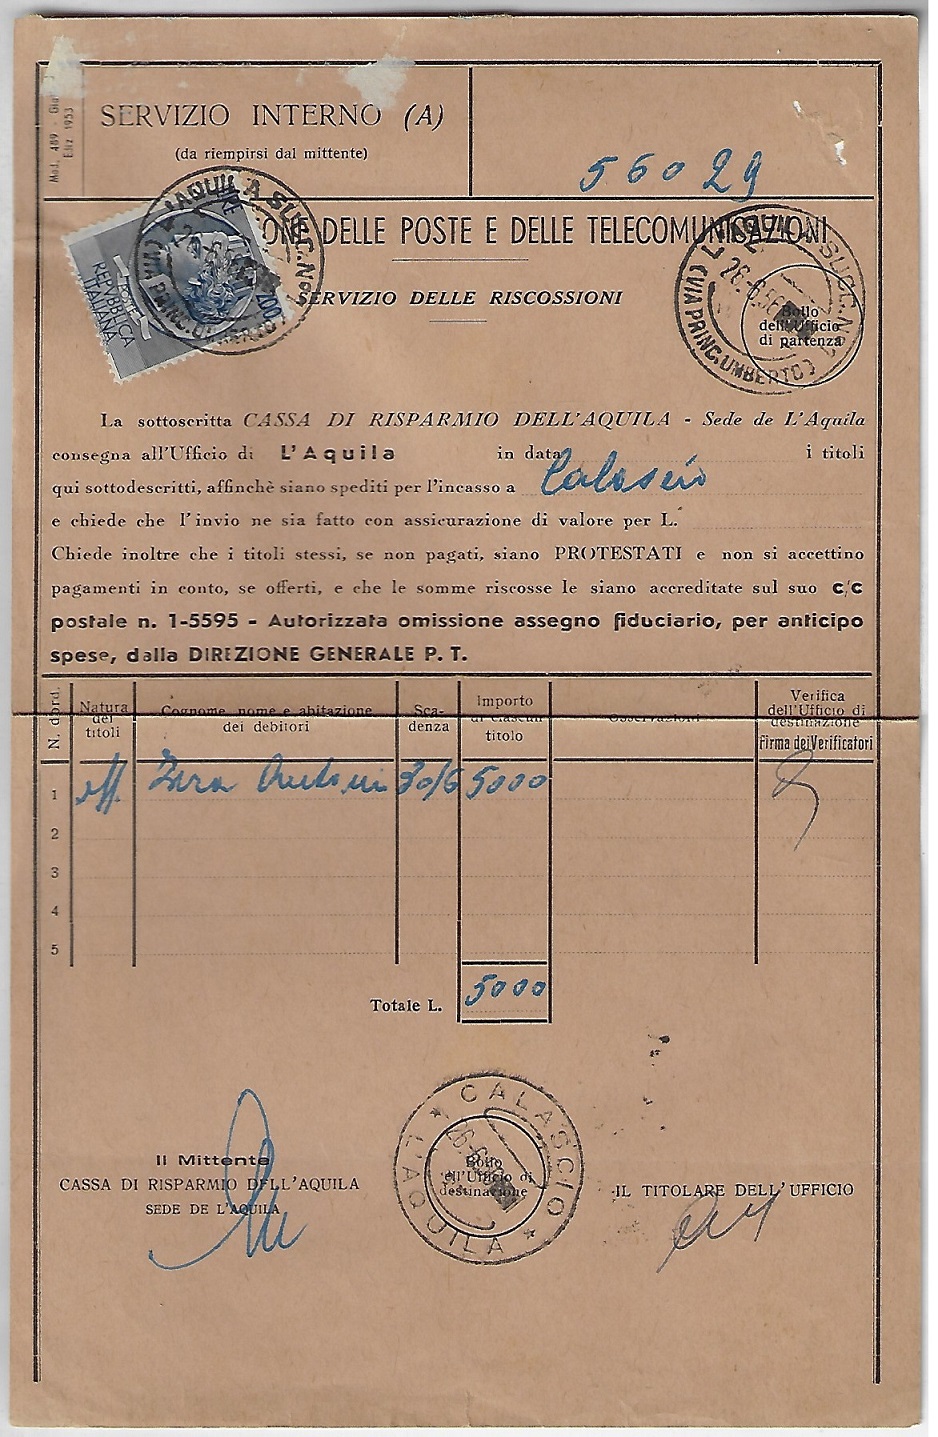 Mod. 489
Ediz. 1953
SERVIZIO INTERNO (A)
(da riempirsi dal mittente)
56029
POSTE
REPUBBLICA
ITALIANA
200
L'AQUILA SUCC. No 1
(VIA PRINC. UMBERTO)
26-6.56
ONE DELLE POSTE E DELLE TELECOMUNICAZIONI
SERVIZIO DELLE RISCOSSIONI
L'AQUILA SUCC. No 1
26-6.56
(VIA PRINC. UMBERTO)
Bollo
dell'Ufficio
di partenza
La sottoscritta CASSA DI RISPARMIO DELL'AQUILA - Sede de L'Aquila
consegna all'Ufficio di L'Aquila in data i titoli
qui sottodescritti, affinchè siano spediti per l'incasso a Calascio
e chiede che l'invio ne sia fatto con assicurazione di valore per L.
Chiede inoltre che i titoli stessi, se non pagati, siano PROTESTATI e non si accettino
pagamenti in conto, se offerti, e che le somme riscosse le siano accreditate sul suo c/c
postale n. 1-5595 - Autorizzata omissione assegno fiduciario, per anticipo
spese, dalla DIREZIONE GENERALE P. T.
N. d'ord.
Natura
dei
titoli
Cognome, nome e abitazione
dei debitori
Sca-
denza
Importo
di ciascun
titolo
Osservazioni
Verifica
dell'Ufficio di
destinazione
Firma dei Verificatori
1 eff. 30/6 5000
2
3
4
5
Totale L. 5000
CALASCIO
L'AQUILA
Bollo
dell'Ufficio di
destinazione
Il Mittente
CASSA DI RISPARMIO DELL'AQUILA
SEDE DE L'AQUILA
IL TITOLARE DELL'UFFICIO